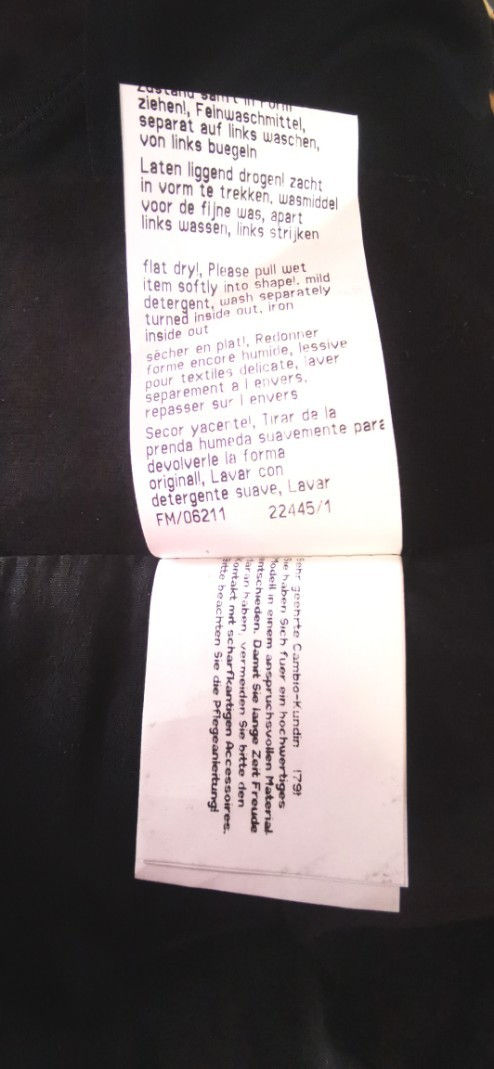 Zustand sanft in Form
ziehen!, Feinwaschmittel,
separat auf links waschen,
von links buegeln
Laten liggend drogen! zacht
in vorm te trekken, wasmiddel
voor de fijne was, apart
links wassen, links strijken
flat dry!, Please pull wet
item softly into shape!, mild
detergent, wash separately
turned inside out, iron
inside out
sècher en plat!, Redonner
forme encore humide, lessive
pour textiles delicate, laver
separement a l envers,
repasser sur l envers
Secor yacer te!, Tirar de la
prenda humeda suavemente para
devolverle la forma
original!, Lavar con
detergente suave, Lavar
FM/06211 22445/1
Sehr geehrte Cambio-Kundin 1791
Sie haben Sich fuer ein hochwertiges
Modell in einem anspruchsvollen Material
entschieden. Damit Sie lange Zeit Freude
daran haben, vermeiden Sie bitte den
Kontakt mit scharfkantigen Accessoires.
Bitte beachten Sie die Pflegeanleitung!